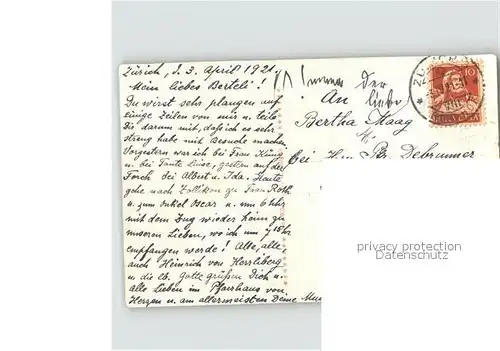 Zürich, d. 3. April 1921.
Mein liebes Berteli!
Du wirst sehr plangen auf
einige Zeilen von mir u. teile
Dir darum mit, daß ich es sehr
streng habe mit Besuche machen.
Vorgestern war ich bei Frau Küng
u. bei Tante Luise, gestern auf der
Forch bei Albert u. Ida. Heute
gehe nach Zollikon zu Frau Roth
u. zum Onkel Oscar u. um 6 Uhr
mit dem Zug wieder heim zu
unseren Lieben, wo ich um 7 15 Uhr
empfangen werde! Alle, alle,
auch Heinrich von Herrliberg
u. die lb. Gotte grüßen Dich u.
alle Lieben im Pfarrhaus von
Herzen u. am allermeisten Deine
An
Bertha Maag
bei H. Debrunner
10
HELVETIA
privacy protection
Datenschutz